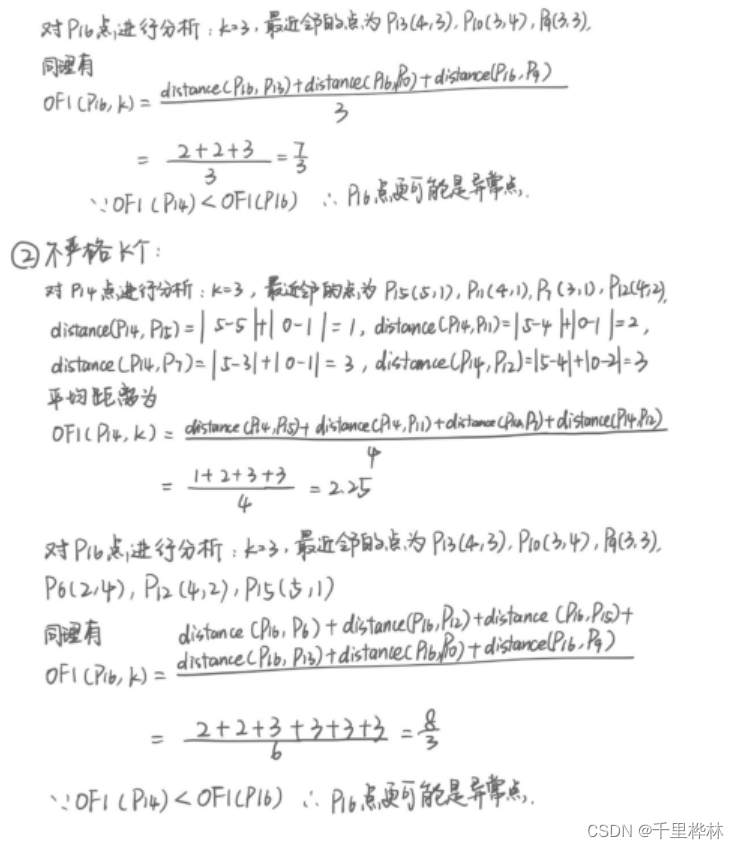 对P16点进行分析：k=3，最近邻的点为P13(4,3)，P10(3,4)，P9(3,3)，
同理有
OF1(P16,k) = distance(P16,P13)+distance(P16,P10)+distance(P16,P9) / 3
= 2+2+3 / 3 = 7/3
∵OF1(P14)<OF1(P16) ∴P16点更可能是异常点.
②不严格K个：
对P14点进行分析：k=3，最近邻的点为P15(5,1)，P11(4,1)，P7(3,1)，P12(4,2)，
distance(P14,P15)=|5-5|+|0-1|=1，distance(P14,P11)=|5-4|+|0-1|=2，
distance(P14,P7)=|5-3|+|0-1|=3，distance(P14,P12)=|5-4|+|0-2|=3
平均距离为
OF1(P14,k) = distance(P14,P15)+distance(P14,P11)+distance(P14,P7)+distance(P14,P12) / 4
= 1+2+3+3 / 4 = 2.25
对P16点进行分析：k=3，最近邻的点为P13(4,3)，P10(3,4)，P9(3,3)，
P6(2,4)，P12(4,2)，P15(5,1)
同理有 distance(P16,P6)+distance(P16,P12)+distance(P16,P15)+
OF1(P16,k) = distance(P16,P13)+distance(P16,P10)+distance(P16,P9)
= 2+2+3+3+3+3 / 6 = 8/3
∵OF1(P14)<OF1(P16) ∴P16点更可能是异常点.
CSDN @千里桦林